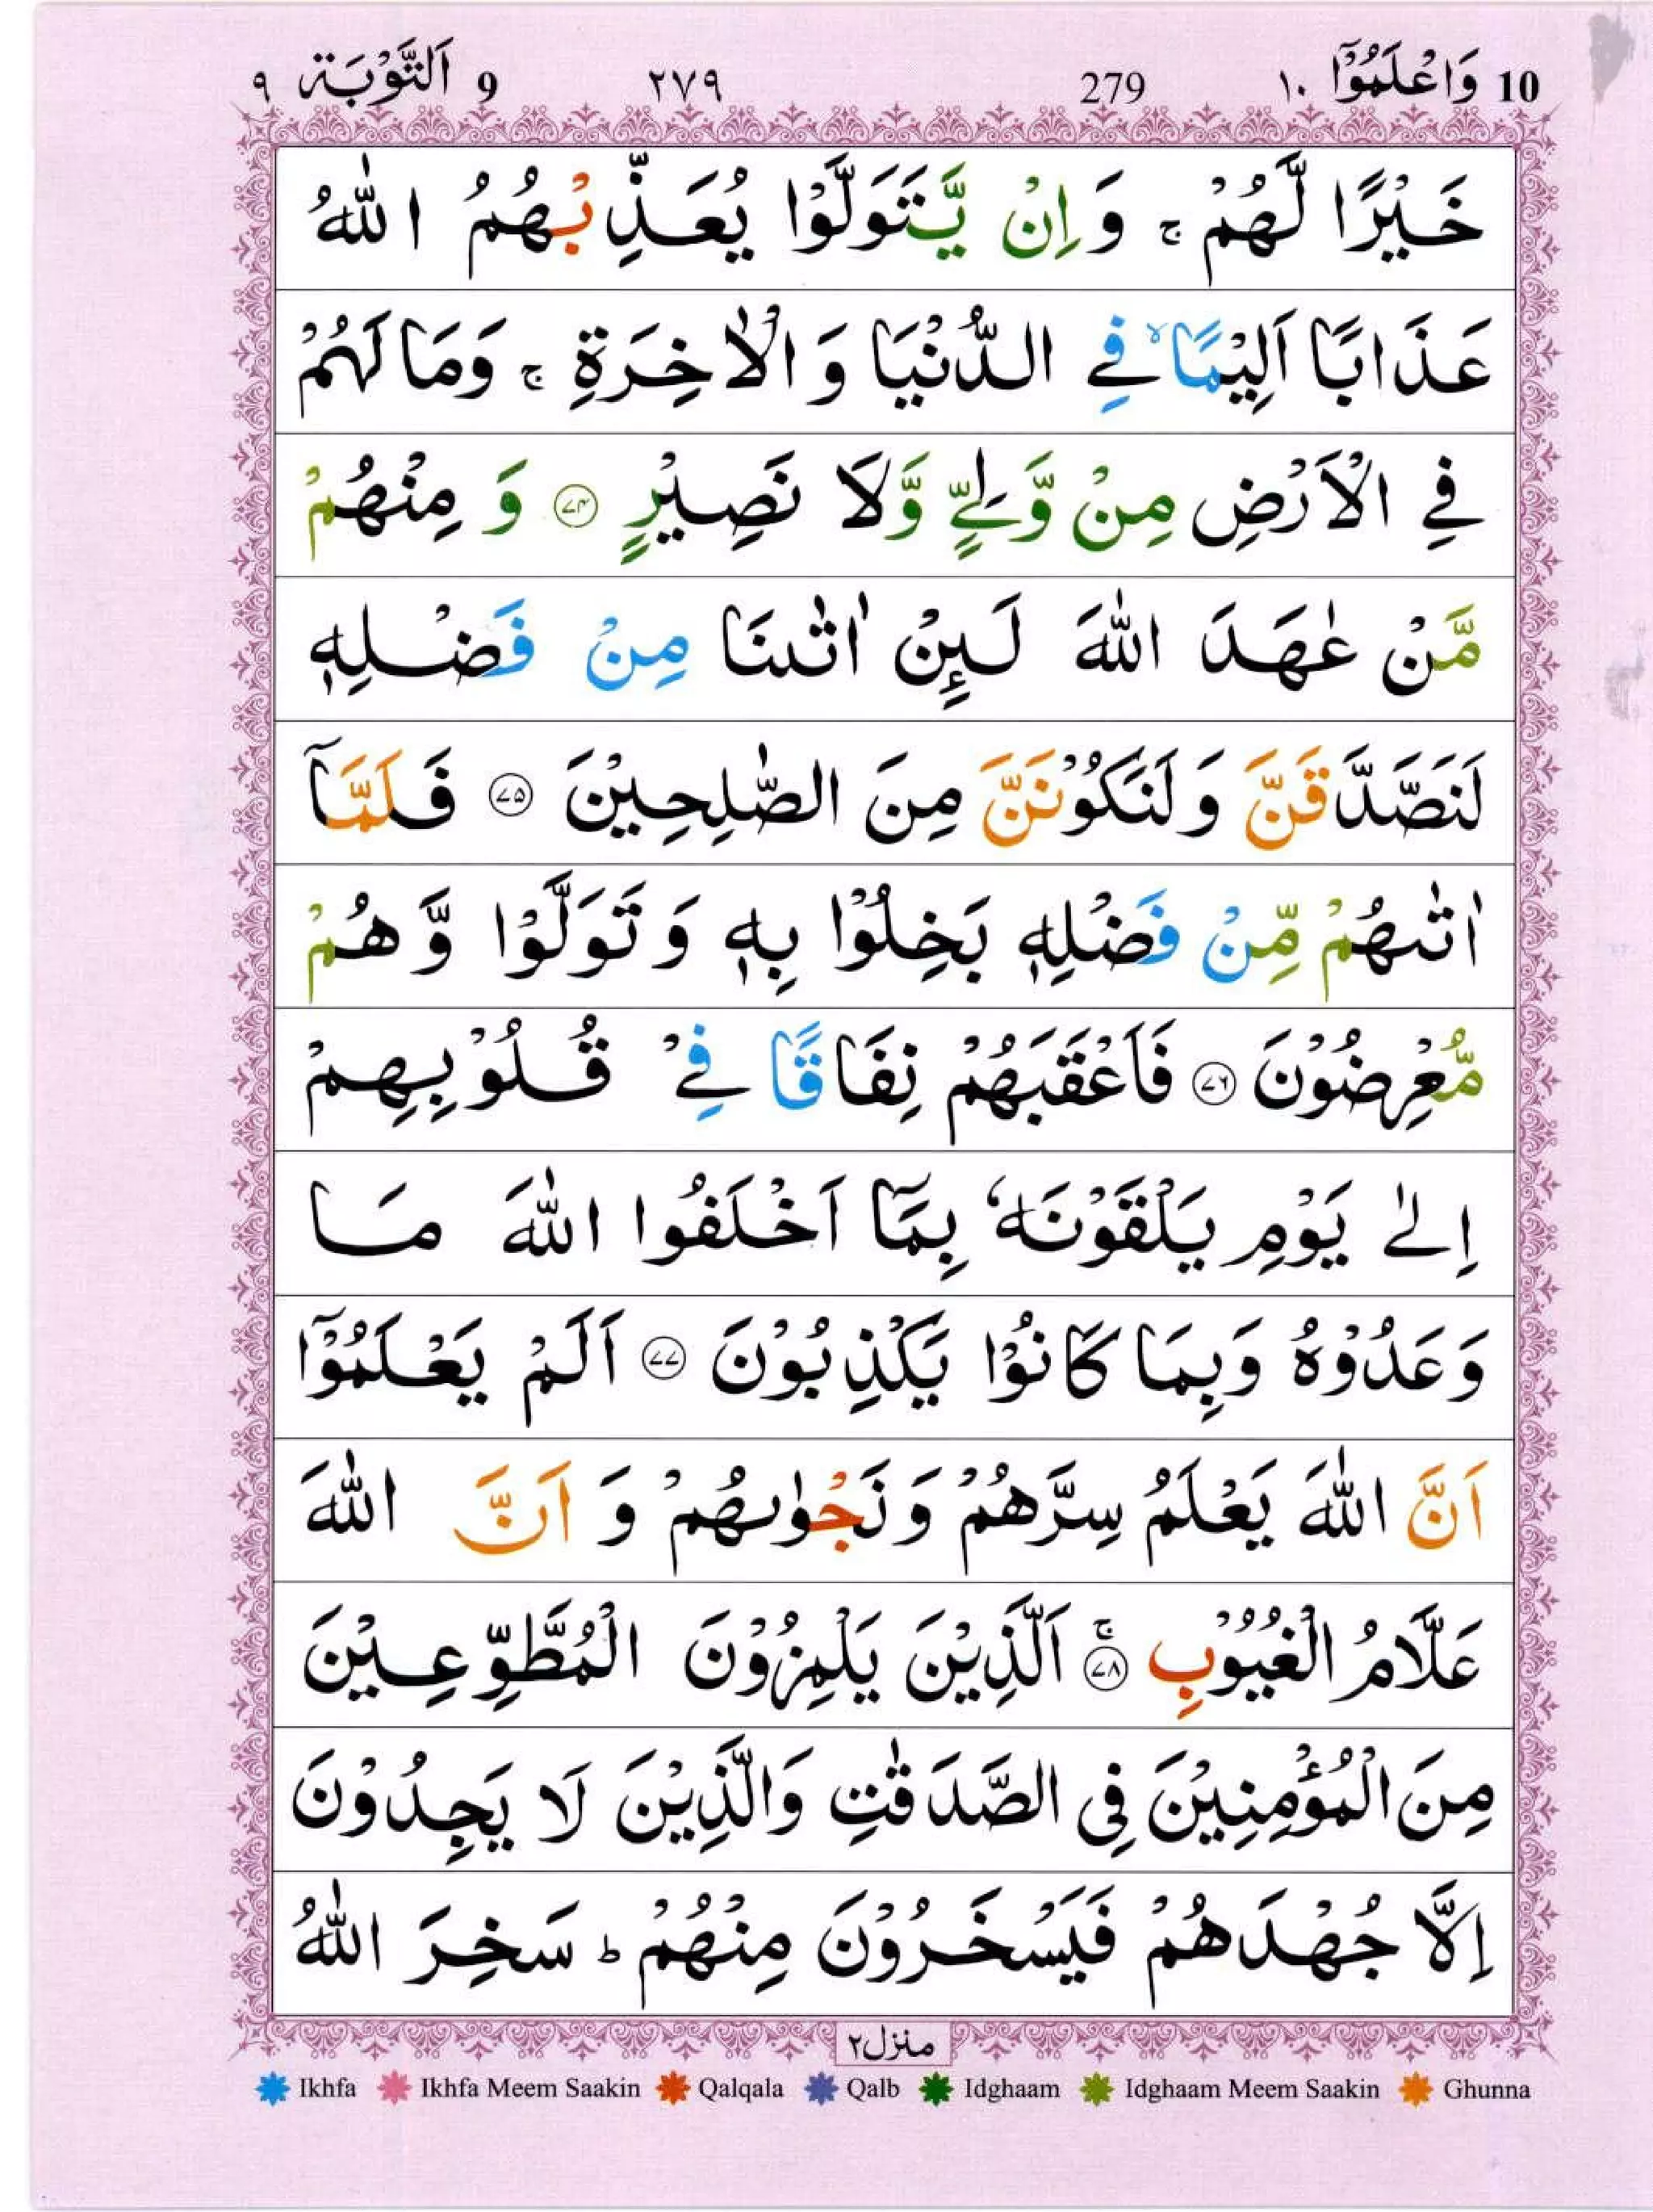 10 وَاعْلَمُوْٓا ١٠ 279 ٢٧٩ 9 اَلتَّوْبَة ٩
خَيْرًا لَّهُمْ ۚ وَاِنْ يَّتَوَلَّوْا يُعَذِّبْهُمُ اللّٰهُ
عَذَابًا اَلِيْمًا ۙ فِے الدُّنْيَا وَ الْاٰخِرَةِ ۚ وَمَا لَهُمْ
فِے الْاَرْضِ مِنْ وَّلِےٍّ وَّلَا نَصِيْرٍ ﴿٧٤﴾ وَ مِنْهُمْ
مَّنْ عٰهَدَ اللّٰهَ لَئِنْ اٰتٰىنَا مِنْ فَضْلِهٖ
لَنَصَّدَّقَنَّ وَ لَنَكُوْنَنَّ مِنَ الصّٰلِحِيْنَ ﴿٧٥﴾ فَلَمَّآ
اٰتٰىهُمْ مِّنْ فَضْلِهٖ بَخِلُوْا بِهٖ وَ تَوَلَّوْا وَّ هُمْ
مُّعْرِضُوْنَ ﴿٧٦﴾ فَاَعْقَبَهُمْ نِفَاقًا فِےْ قُلُوْبِهِمْ
اِلٰے يَوْمِ يَلْقَوْنَهٗ بِمَآ اَخْلَفُوا اللّٰهَ مَا
وَعَدُوْهُ وَبِمَا كَانُوْا يَكْذِبُوْنَ ﴿٧٧﴾ اَلَمْ يَعْلَمُوْٓا
اَنَّ اللّٰهَ يَعْلَمُ سِرَّهُمْ وَ نَجْوٰىهُمْ وَ اَنَّ اللّٰهَ
عَلَّامُ الْغُيُوْبِ ﴿٧٨﴾ۚ اَلَّذِيْنَ يَلْمِزُوْنَ الْمُطَّوِّعِيْنَ
مِنَ الْمُؤْمِنِيْنَ فِى الصَّدَقٰتِ وَالَّذِيْنَ لَا يَجِدُوْنَ
اِلَّا جُهْدَهُمْ فَيَسْخَرُوْنَ مِنْهُمْ ؕ سَخِرَ اللّٰهُ
منزل٢
Ikhfa Ikhfa Meem Saakin Qalqala Qalb Idghaam Idghaam Meem Saakin Ghunna